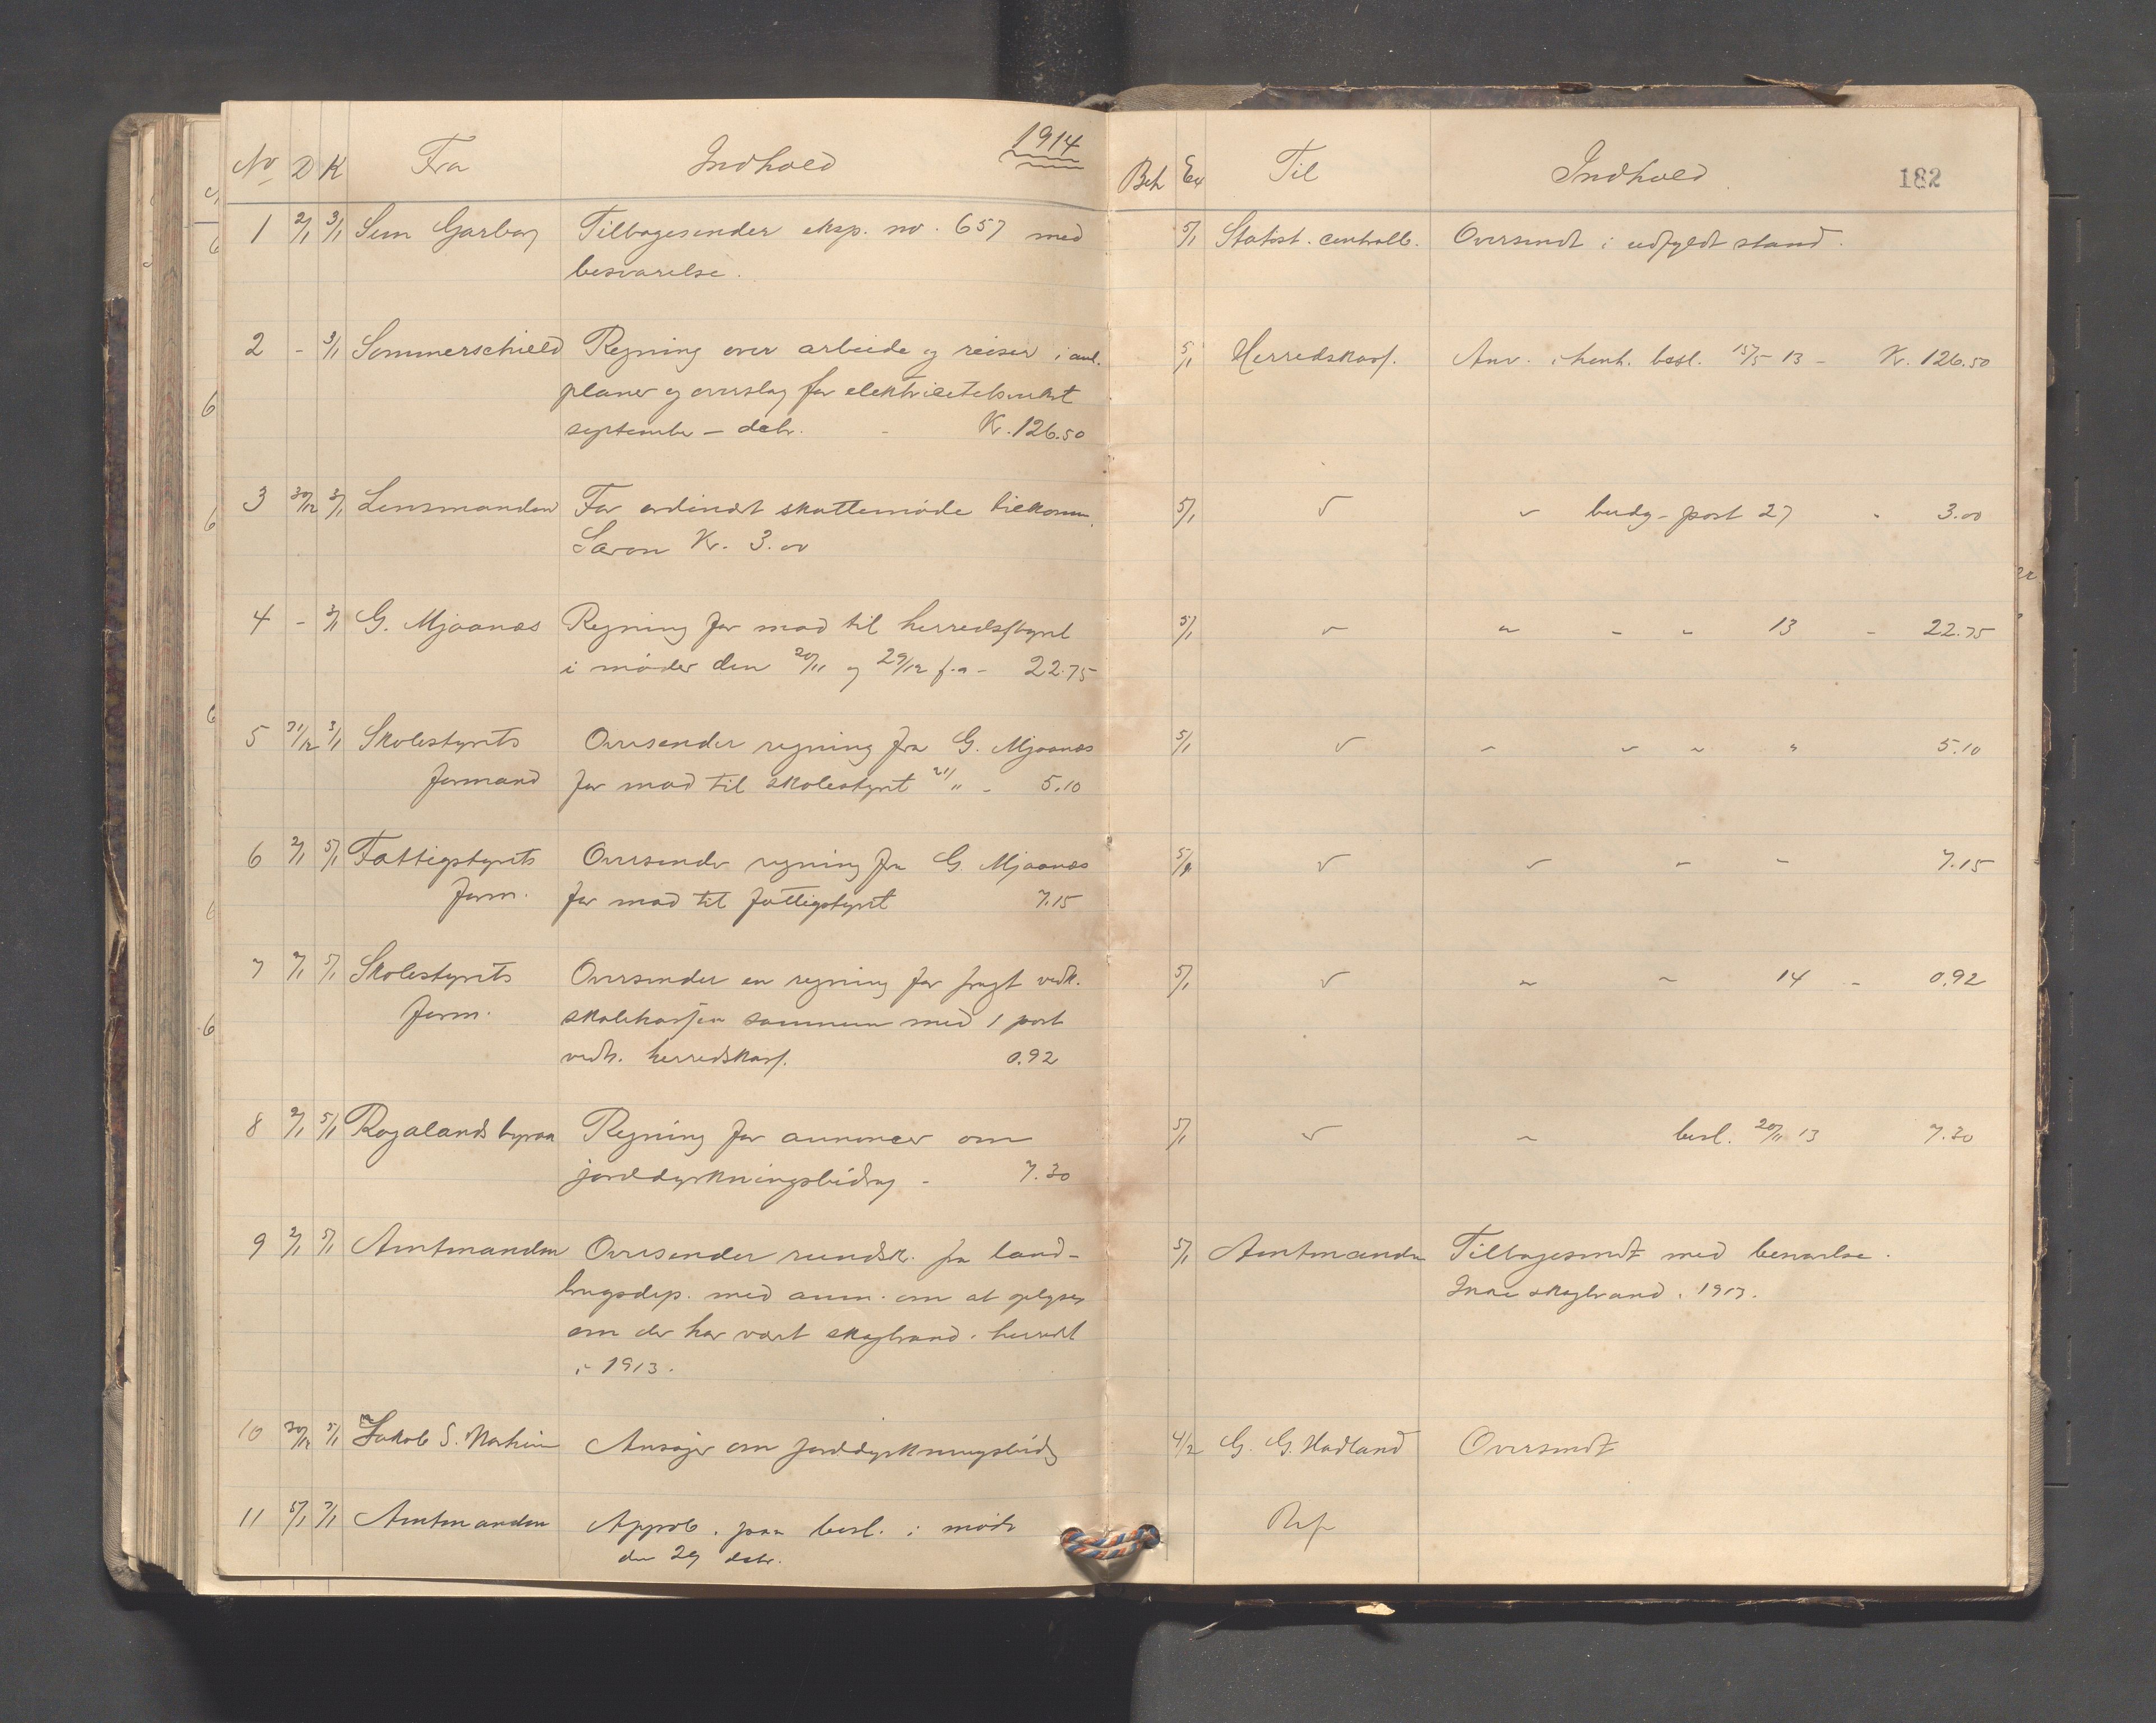 1914
No D K Fra Indhold
1 2/1 3/1 Sem Garborg Tilbagesender eksp. no. 657 med
besvarelse.
2 - 3/1 Sommerschield Regning over arbeide og reiser i anl.
planer og overslag for elektricitetsverket
september - decbr. - Kr. 126.50
3 30/12 3/1 Lensmanden For ordinært skattemøde tilkomm.
Kr. 3.00
4 - 3/1 G. Mjaanæs Regning for mad til herredsstyret
i møder den 20/11 og 29/12 f.a - 22.75
5 31/12 3/1 Skolestyrets Oversender regning fra G. Mjaanæs
formand for mad til skolestyret 21/11 - 5.10
6 2/1 5/1 Fattigstyrets Oversender regning fra G. Mjaanæs
form. for mad til fattigstyret 7.15
7 2/1 5/1 Skolestyrets Oversender en regning for fragt vedk.
form. skolekassen sammen med 1 post
vedk. herredskass. 0.92
8 2/1 5/1 Rogalands byraa Regning for annoncer om
jorddyrkningsbidrag - 7.30
9 2/1 5/1 Amtmanden Oversender rundsk. fra land-
brugsdep. med anm. om at oplyses
om der har vært skogbrand i herredet
i 1913.
10 30/12 5/1 Jakob S. Ansøger om jorddyrkningsbidrag
11 5/1 7/1 Amtmanden Approb. paa besl. i møde
den 29 decbr.
182
Beh Ex Til Indhold
5/1 Statist. centralb. Oversendt i udfyldt stand.
5/1 Herredskass. Anv. i henh. besl. 15/5 13 - Kr. 126.50
5/1 " " budg-post 27 " 3.00
5/1 " " " " 13 - 22.75
5/1 " " " " " 5.10
5/1 " " " " 7.15
5/1 " " " 14 - 0.92
5/1 " " besl. 20/11 13 7.30
5/1 Amtmanden Tilbagesendt med besvarelse.
Ikke skogbrand i 1913.
4/2 G. G. Hadland Oversendt
Ref